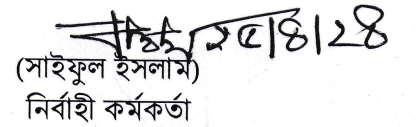 ২৫|৪|২৪
(সাইফুল ইসলাম)
নির্বাহী কর্মকর্তা